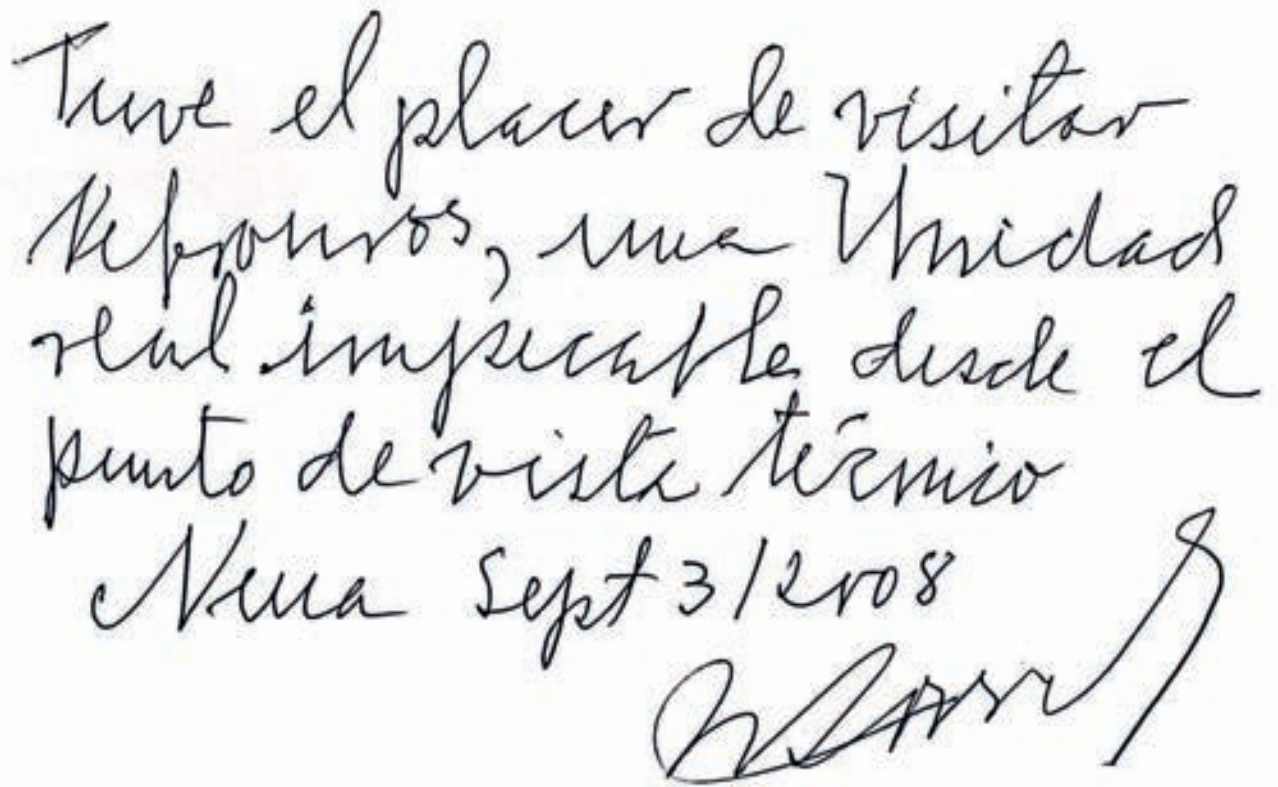 Tuve el placer de visitar
Nefrouros, una Unidad
real impecable desde el
punto de vista técnico
Neiva Sept 3/2008